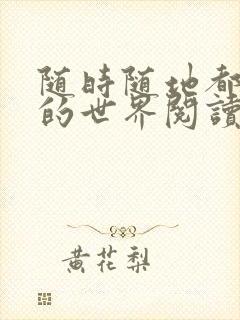 随時随地都
的世界閱讀
黄花梨